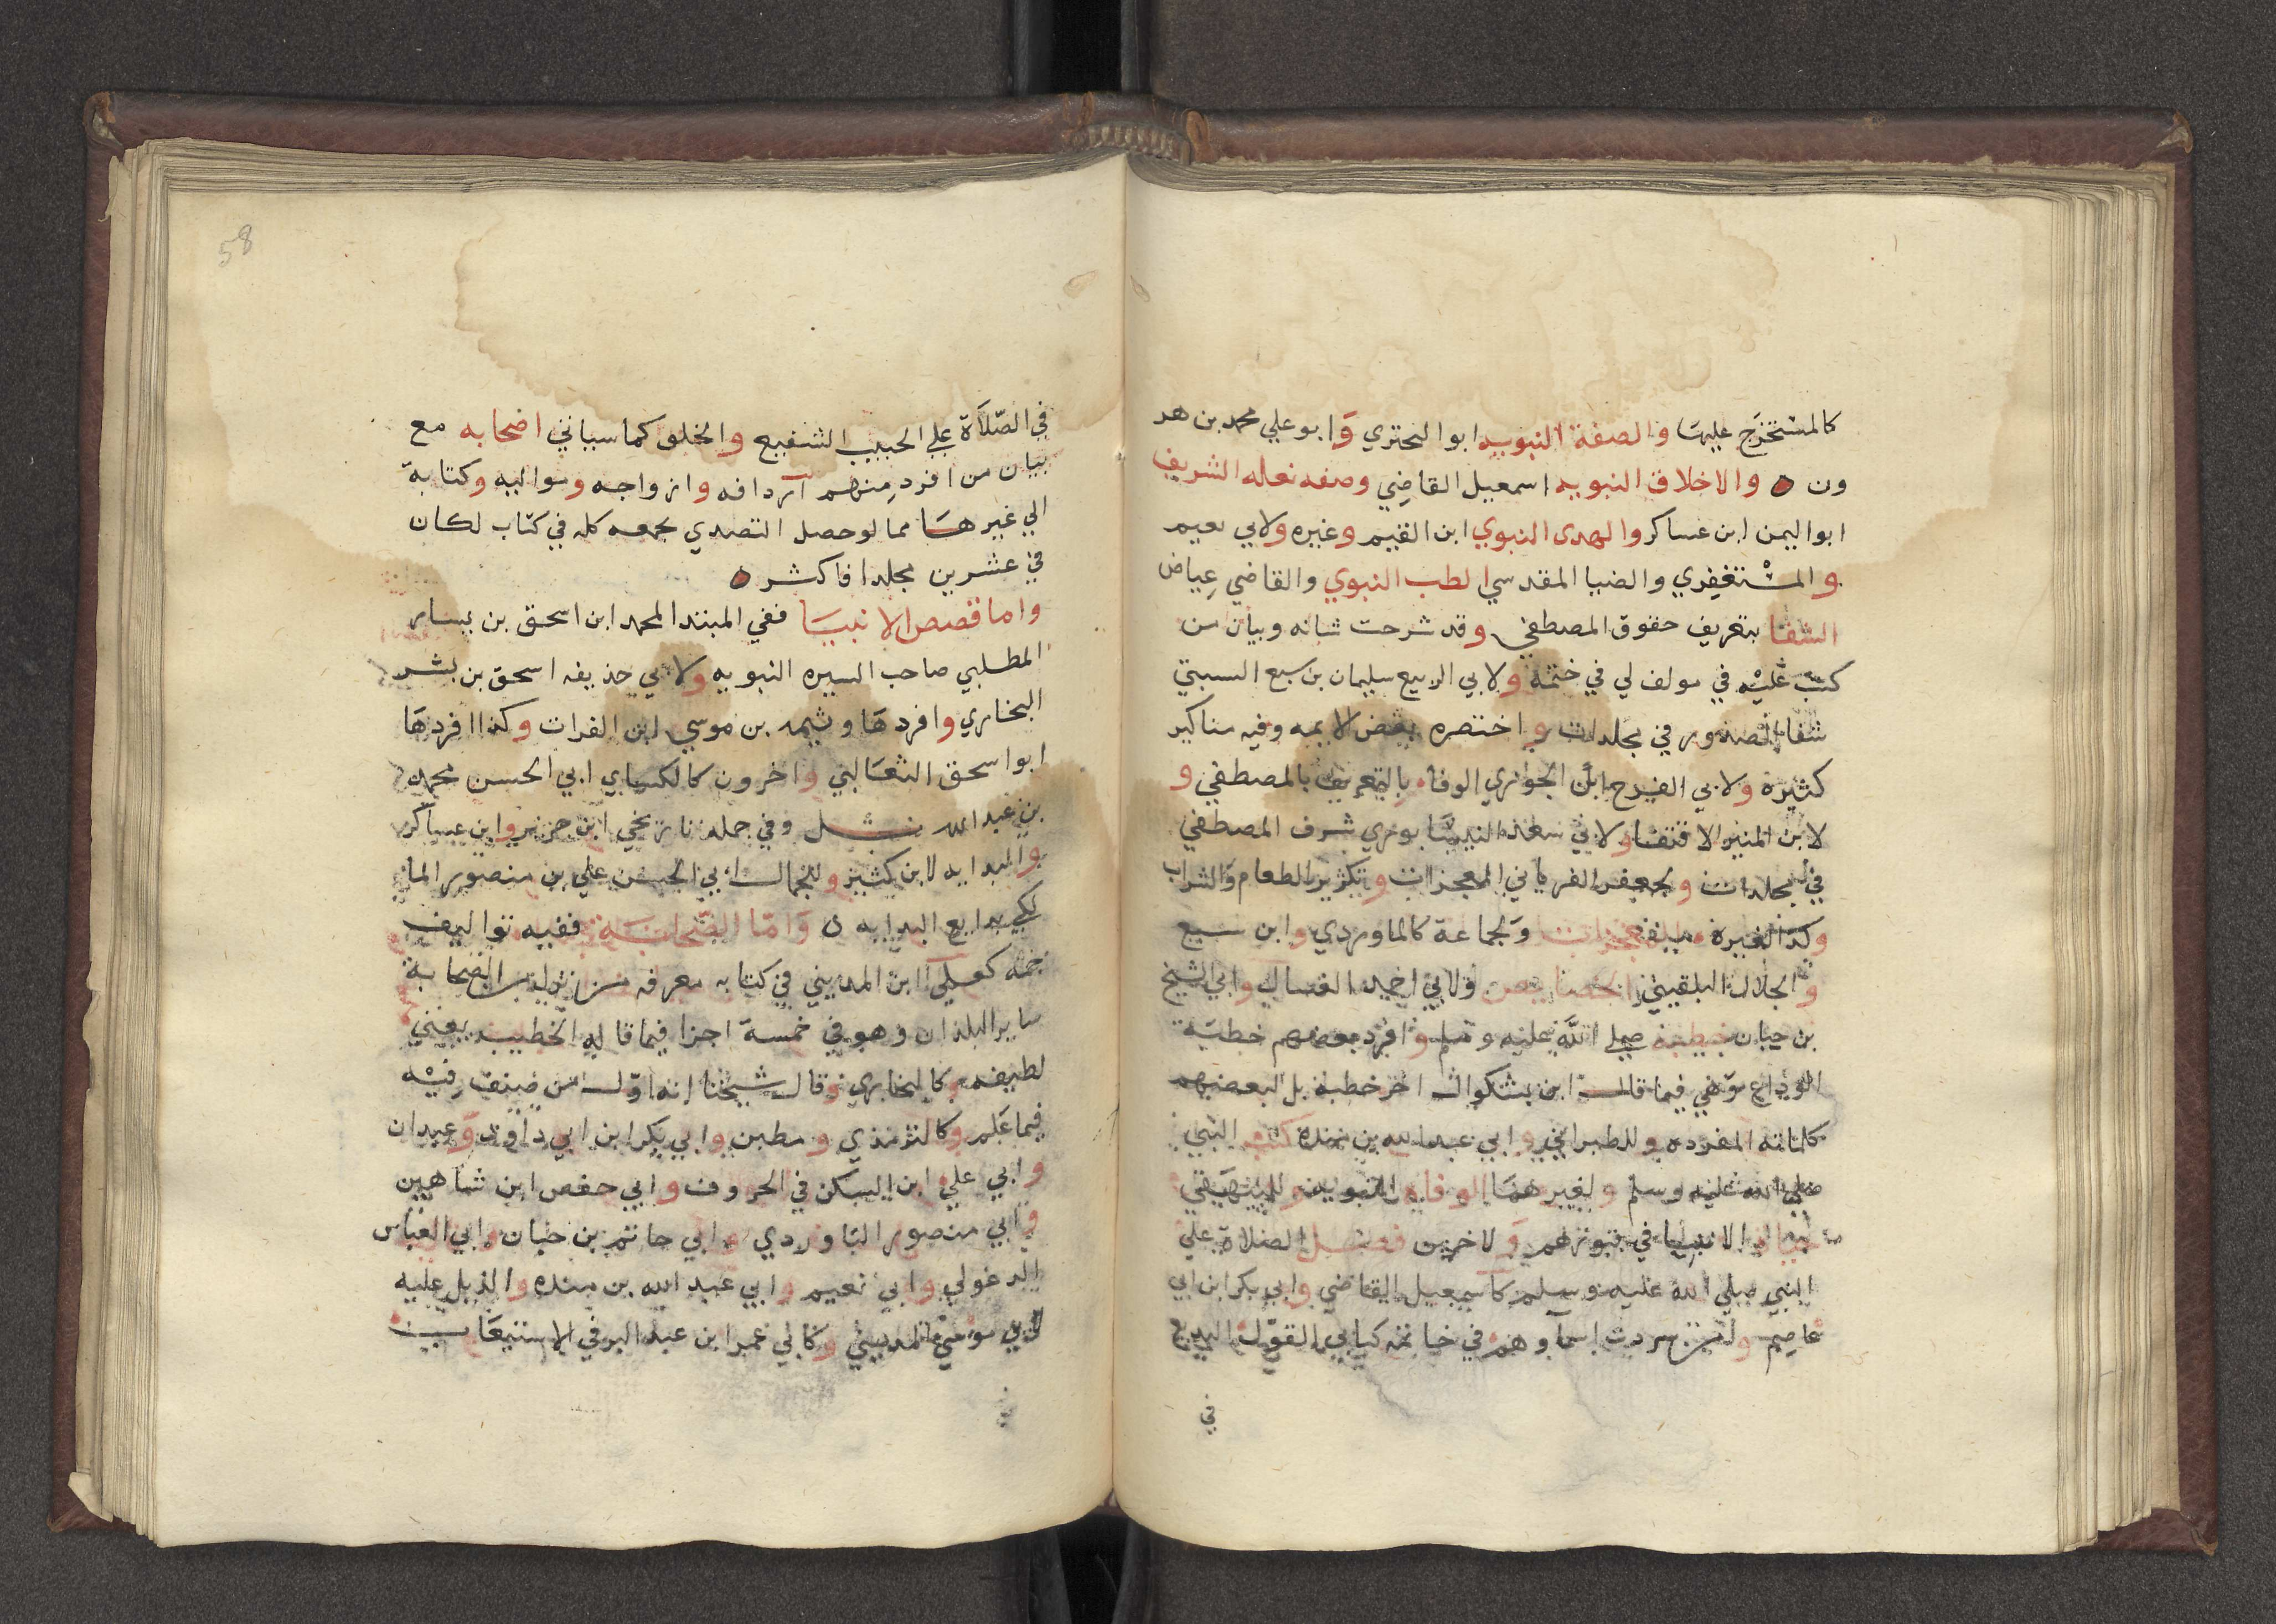 كالمستخرج عليها والصفة النبويه ابو البحتري وابو علي محمد بن هر
ون ه والاخلاق النبويه اسمعيل القاضي وصفه نعله الشريف
ابو اليمن ابن عساكر والهدى النبوي ابن القيم وغيره ولابي نعيم
والمستغفري والضيا المقدسي الطب النبوي والقاضي عياض
الشفا بتعريف حقوق المصطفي وقد شرحت شانه وبيان من
كتب عليه في مولف لي في ختمه ولابي الربيع سليمان بن سبع السبتي
شفا الصدور في مجلدات واختصره بعض الايمه وفيه مناكير
كثيرة ولابي الفرج ابن الجوزي الوفا بالتعريف بالمصطفي و
لابن المنير الاقتفا ولابي سعد النيسابوري شرف المصطفي
في مجلدات ولجعفر الفريابي المعجزات وتكثير الطعام والشراب
وكذا لغيره المعجزات ولجماعة كالماوردي وابن سبع
والجلال البلقيني الخصايص ولابي احمد العسال وابي الشيخ
بن حيان خطبه صلي الله عليه وسلم وافرد بعضهم خطبة
الوداع وهي فيما قال ابن بشكوال اخر خطبة بل لبعضهم
كلماته المفرده وللطبراني وابي عبد الله بن منده كتب النبي
صلي الله عليه وسلم ولغيرهما الوفاه النبويه وللبيهقي
حياة الانبيا في قبورهم ولاخرين فضل الصلاة علي
النبي صلي الله عليه وسلم كاسمعيل القاضي وابي بكر ابن ابي
عاصم سردت اسماوهم في خاتمه كتابي القول البديع
في
58
في الصلاة علي الحبيب الشفيع والخلق كما سياتي اصحابه مع
بيان من افرد منهم اردافه وازواجه ومواليه وكتابه
الي غيرها مما لو حصل التصدي لجمعه كله في كتاب لكان
في عشرين مجلدا فاكثر ه
واما قصص الانبيا ففي المبتدا لمحمد ابن اسحق بن يسار
المطلبي صاحب السيره النبويه ولابي حذيفه اسحق بن بشر
البخاري وافردها وثيمه بن موسي ابن الفرات وكذا افردها
ابو اسحق الثعالبي واخرون كالكساي ابي الحسن محمد
بن عبد الله وفي جمله تاريخي ابن جرير وابن عساكر
والبدايه لابن كثير وللجمال ابي الحسن علي بن منصور الما
لكي بدايع البدايه ه واما الصحابة ففيه تواليف
جمه كعلي ابن المديني في كتابه معرفه من نزل من الصحابة
ساير البلدان وهو في خمسة اجزا فيما قاله الخطيب يعني
لطيفه وكالبخاري وقال شيخنا انه اول من صنف فيه
فيما علم وكالترمذي ومطين وابي بكر ابن ابي داود وعبدان
وابي علي ابن السكن في الحروف وابي حفص ابن شاهين
وابي منصور الباوردي وابي حاتم بن حبان وابي العباس
الدغولي وابي نعيم وابي عبد الله بن منده والذيل عليه
لابي موسي المديني وكابي عمر ابن عبد البر في الاستيعاب